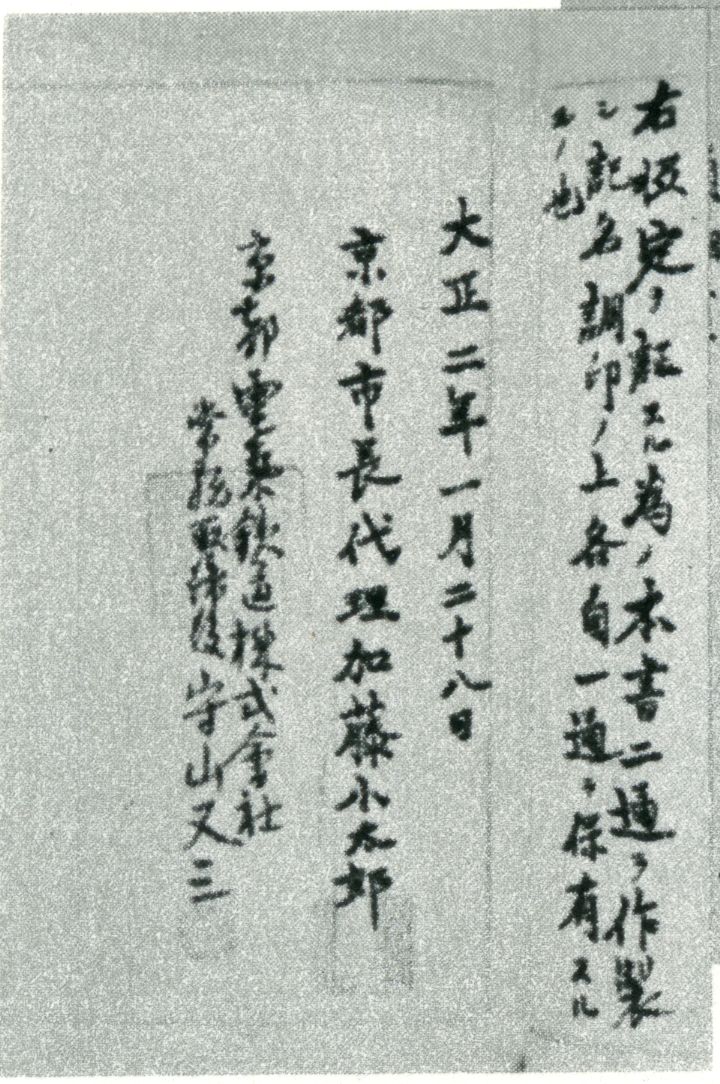 右協定ヲ証スル為メ本書二通ヲ作製
シ記名調印ノ上各自一通ヲ保有スル
モノ也
大正二年一月二十八日
京都市長代理加藤小太郎
京都電気鉄道株式會社
常務取締役守山又三